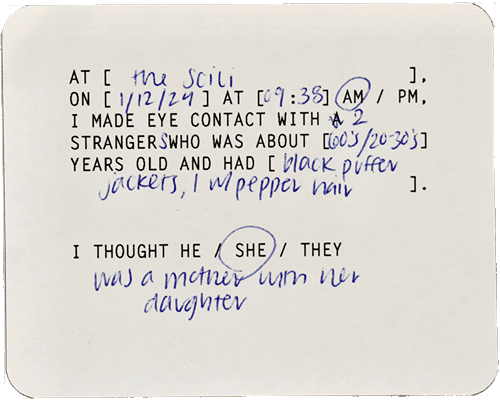 AT [ the scili ],
ON [ 1/12/24 ] AT [09:38] AM / PM,
I MADE EYE CONTACT WITH A 2
STRANGERS WHO WAS ABOUT [60's/20-30's]
YEARS OLD AND HAD [ black puffer
jackets, 1 w/ pepper hair ].
I THOUGHT HE / SHE / THEY
was a mother with her
daughter